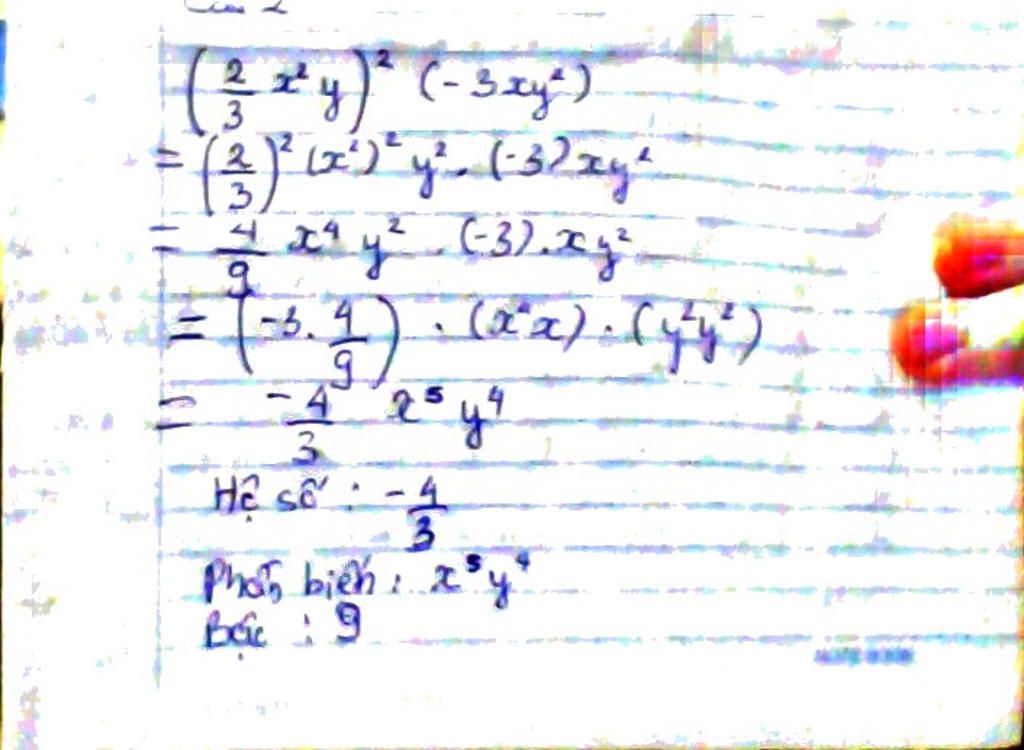 (2/3 x²y)² (-3xy²)
= (2/3)² (x²)² y² . (-3) xy²
= 4/9 x⁴ y² . (-3) . xy²
= (-3 . 4/9) . (x⁴x) . (y²y²)
= -4/3 x⁵ y⁴
Hệ số : -4/3
Phần biến : x⁵y⁴
Bậc : 9